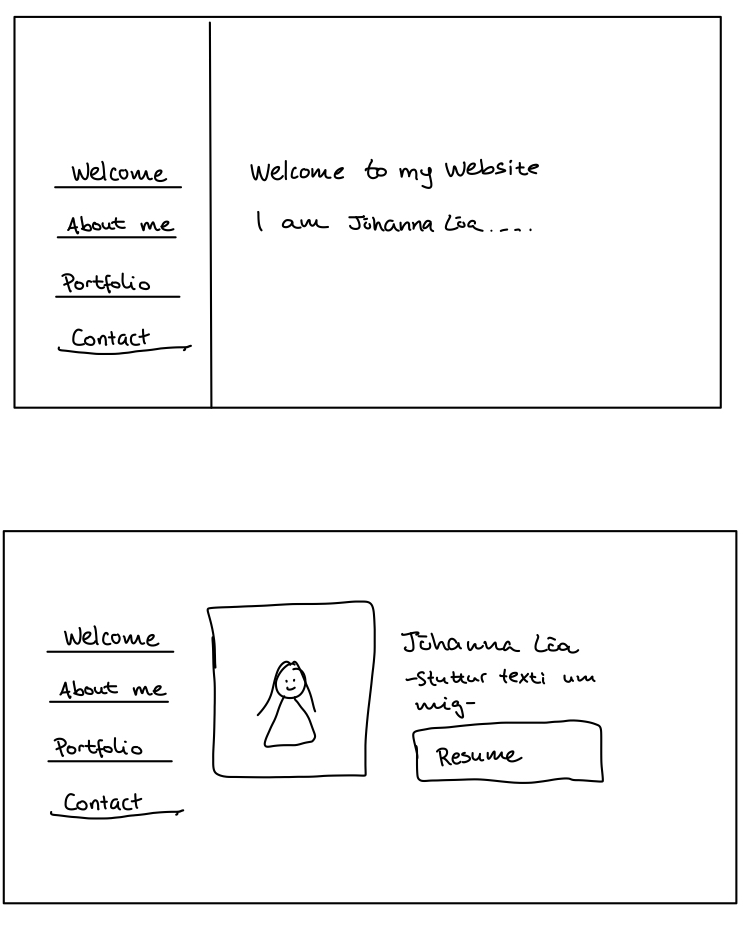 Welcome
About me
Portfolio
Contact
Welcome to my Website
I am Jóhanna Lóa.....
Welcome
About me
Portfolio
Contact
Jóhanna Lóa
-Stuttur texti um
mig-
Resume